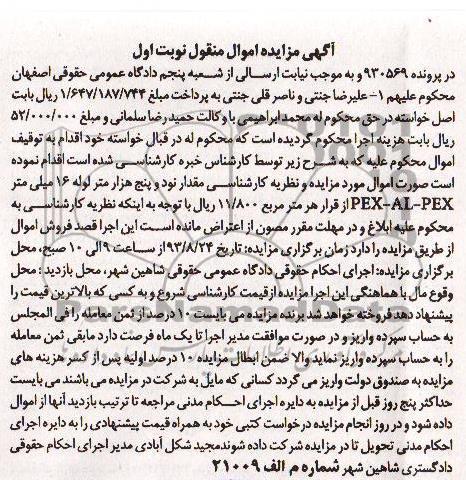 آگهی مزایده اموال منقول نوبت اول
در پرونده ۹۳۰۵۶۹ و به موجب نیابت ارسالی از شعبه پنجم دادگاه عمومی حقوقی اصفهان
محکوم علیهم ۱- علیرضا جنتی و ناصر قلی جنتی به پرداخت مبلغ ۱/۶۴۷/۱۸۷/۷۴۴ ریال بابت
اصل خواسته در حق محکوم له محمد ابراهیمی با وکالت حمید رضا سلمانی و مبلغ ۵۲/۰۰۰/۰۰۰
ریال بابت هزینه اجرا محکوم گردیده است که محکوم له در قبال خواسته خود اقدام به توقیف
اموال محکوم علیه که به شرح زیر توسط کارشناس خبره کارشناسی شده است اقدام نموده
است صورت اموال مورد مزایده و نظریه کارشناسی مقدار نود و پنج هزار متر لوله ۱۶ میلی متر
PEX-AL-PEX از قرار هر متر مربع ۱۱/۸۰۰ ریال با توجه به اینکه نظریه کارشناسی به
محکوم علیه ابلاغ و در مهلت مقرر مصون از اعتراض مانده است این اجرا قصد فروش اموال
از طریق مزایده را دارد زمان برگزاری مزایده: تاریخ ۹۳/۸/۲۴ از ساعت ۹ الی ۱۰ صبح، محل
برگزاری مزایده: اجرای احکام حقوقی دادگاه عمومی حقوقی شاهین شهر، محل بازدید : محل
وقوع مال با هماهنگی این اجرا مزایده از قیمت کارشناسی شروع و به کسی که بالاترین قیمت را
پیشنهاد دهد فروخته خواهد شد برنده مزایده می بایست ۱۰ درصد از ثمن معامله را فی المجلس
به حساب سپرده واریز و در صورت موافقت مدیر اجرا تا یک ماه فرصت دارد مابقی ثمن معامله
را به حساب سپرده واریز نماید والا ضمن ابطال مزایده ۱۰ درصد اولیه پس از کسر هزینه های
مزایده به صندوق دولت واریز می گردد کسانی که مایل به شرکت در مزایده می باشند می بایست
حداکثر پنج روز قبل از مزایده به دایره اجرای احکام مدنی مراجعه تا ترتیب بازدید آنها از اموال
داده شود و در روز انجام مزایده درخواست کتبی خود به همراه قیمت پیشنهادی را به دایره اجرای
احکام مدنی تحویل تا در مزایده شرکت داده شوند مجید شکل آبادی مدیر اجرای احکام حقوقی
دادگستری شاهین شهر شماره م الف ۲۱۰۰۹